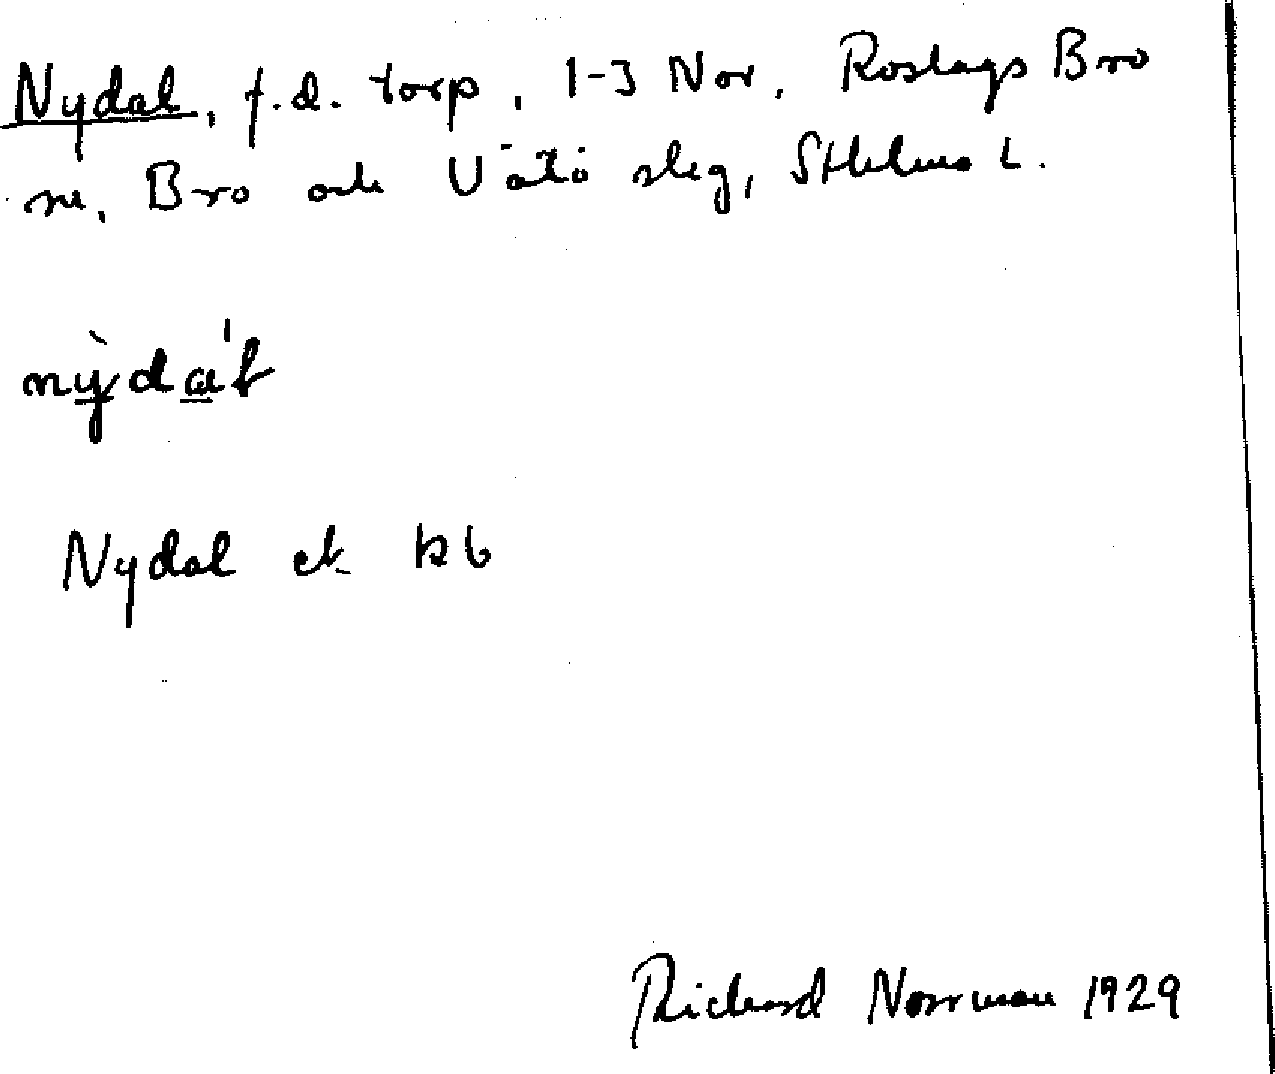 Nydal, f.d. torp, 1-3 Nor, Roslags Bro
sn, Bro och Vätö slg, Sthlms L.
nỳda'l
Nydal ek kb
Richard Norrman 1929